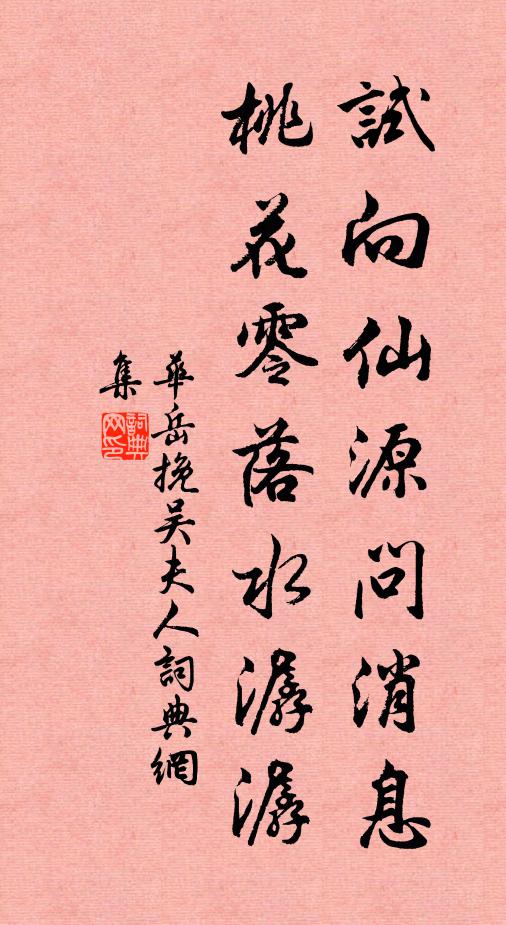 試向仙源問消息
桃花零落水潺潺
華岳挽吴夫人詞典網
集
詞典
网印